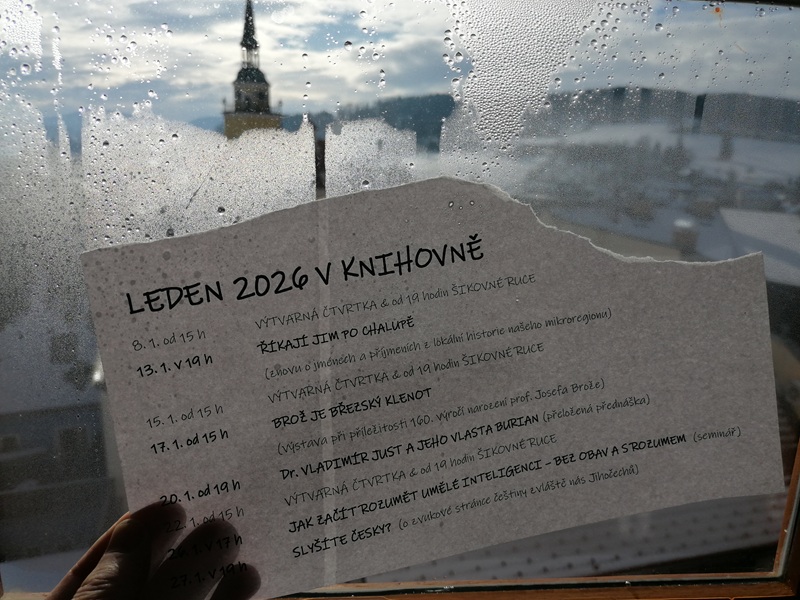 LEDEN 2026 V KNIHOVNĚ
8. 1. od 15 h VÝTVARNÁ ČTVRTKA & od 19 hodin ŠIKOVNÉ RUCE
13. 1. v 19 h ŘÍKAJÍ JIM PO CHALUPĚ
(znovu o jménech a příjmeních z lokální historie našeho mikroregionu)
15. 1. od 15 h VÝTVARNÁ ČTVRTKA & od 19 hodin ŠIKOVNÉ RUCE
17. 1. od 15 h BROŽ JE BŘEZSKÝ KLENOT
(výstava při příležitosti 160. výročí narození prof. Josefa Brože)
20. 1. od 19 h Dr. VLADIMÍR JUST A JEHO VLASTA BURIAN (přeložená přednáška)
22. 1. od 15 h VÝTVARNÁ ČTVRTKA & od 19 hodin ŠIKOVNÉ RUCE
1. v 17 h JAK ZAČÍT ROZUMĚT UMĚLÉ INTELIGENCI - BEZ OBAV A S ROZUMEM (seminář)
27. 1. v 19 h SLYŠÍTE ČESKY? (o zvukové stránce češtiny zvláště nás Jihočechů)